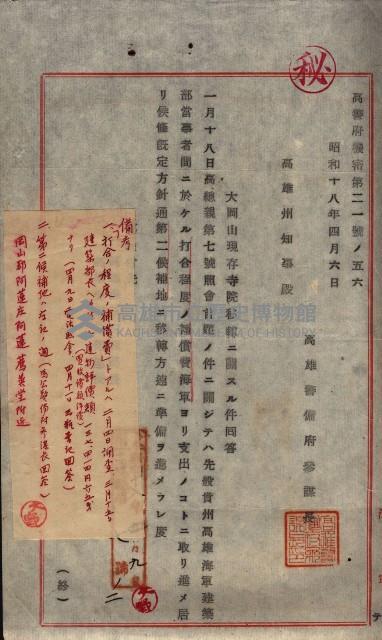 秘
高警府機密第二一號ノ五六
昭和十八年四月六日
高雄警備府參謀長
高雄州知事殿
大岡山現存寺院移轉ニ關スル件回答
一月十八日高總親第七號照會首題ノ件ニ關シテハ先般貴州高雄海軍建築
部當事者間ニ於ケル打合程度ノ補償費海軍ヨリ支出ノコトニ取リ進メ居
リ候條既定方針通第二候補地ニ移轉方速ニ準備ヲ進メラレ度
(終)
備考
一、「打合ノ程度ノ補償費」トアルハ二月四日調査、三月十五日
建築部長
建物評價額
(四月九日
四月十一日
回答)
二、第二候補地ハ左記ノ通
岡山郡阿蓮庄阿蓮 薦善堂附近
高雄市立歷史博物館
KAOHSIUNG MUSEUM OF HISTORY